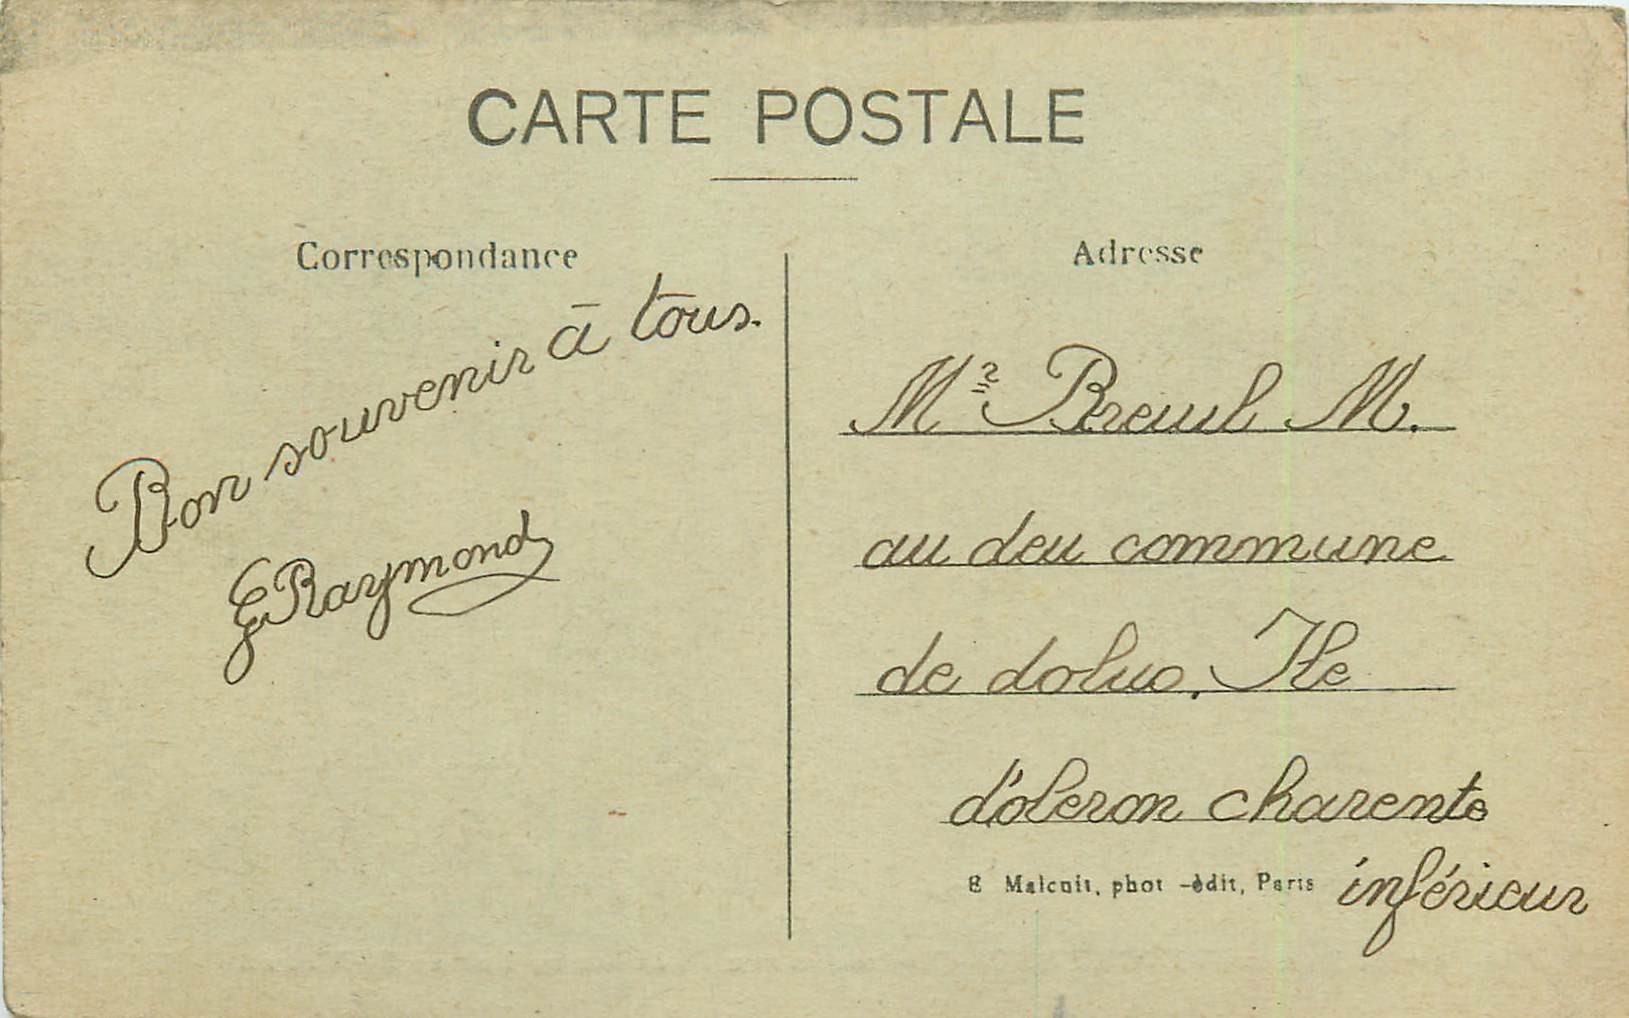 CARTE POSTALE
Correspondance
Bon souvenir à tous.
E Raymond
Adresse
Mr Breuil M.
au deu commune
de dolus. Ile
d'oleron charente
inférieur
E Malcuit, phot -édit, Paris